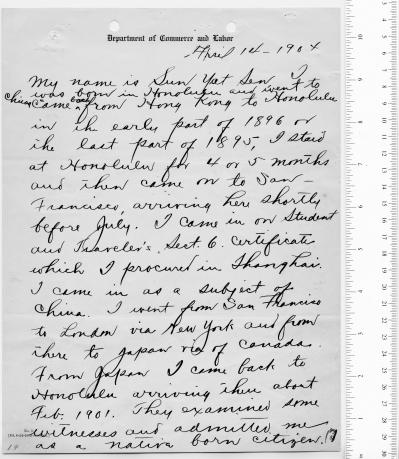 Department of Commerce and Labor
April 14 - 1904
My name is Sun Yat Sen. I
was born in Honolulu and went to
China
came back from Hong Kong to Honolulu
in the early part of 1896 or
the last part of 1895, I staid
at Honolulu for 4 or 5 months
and then came on to San
Francisco, arriving here shortly
before July. I came in on Student
and Traveler's Sect. 6. Certificate
which I procured in Shanghai.
I came in as a subject of
China. I went from San Francisco
to London via New York and from
there to Japan via of Canada.
From Japan I came back to
Honolulu arriving there about
Feb. 1901. They examined some
witnesses and admitted me
as a native born citizen.